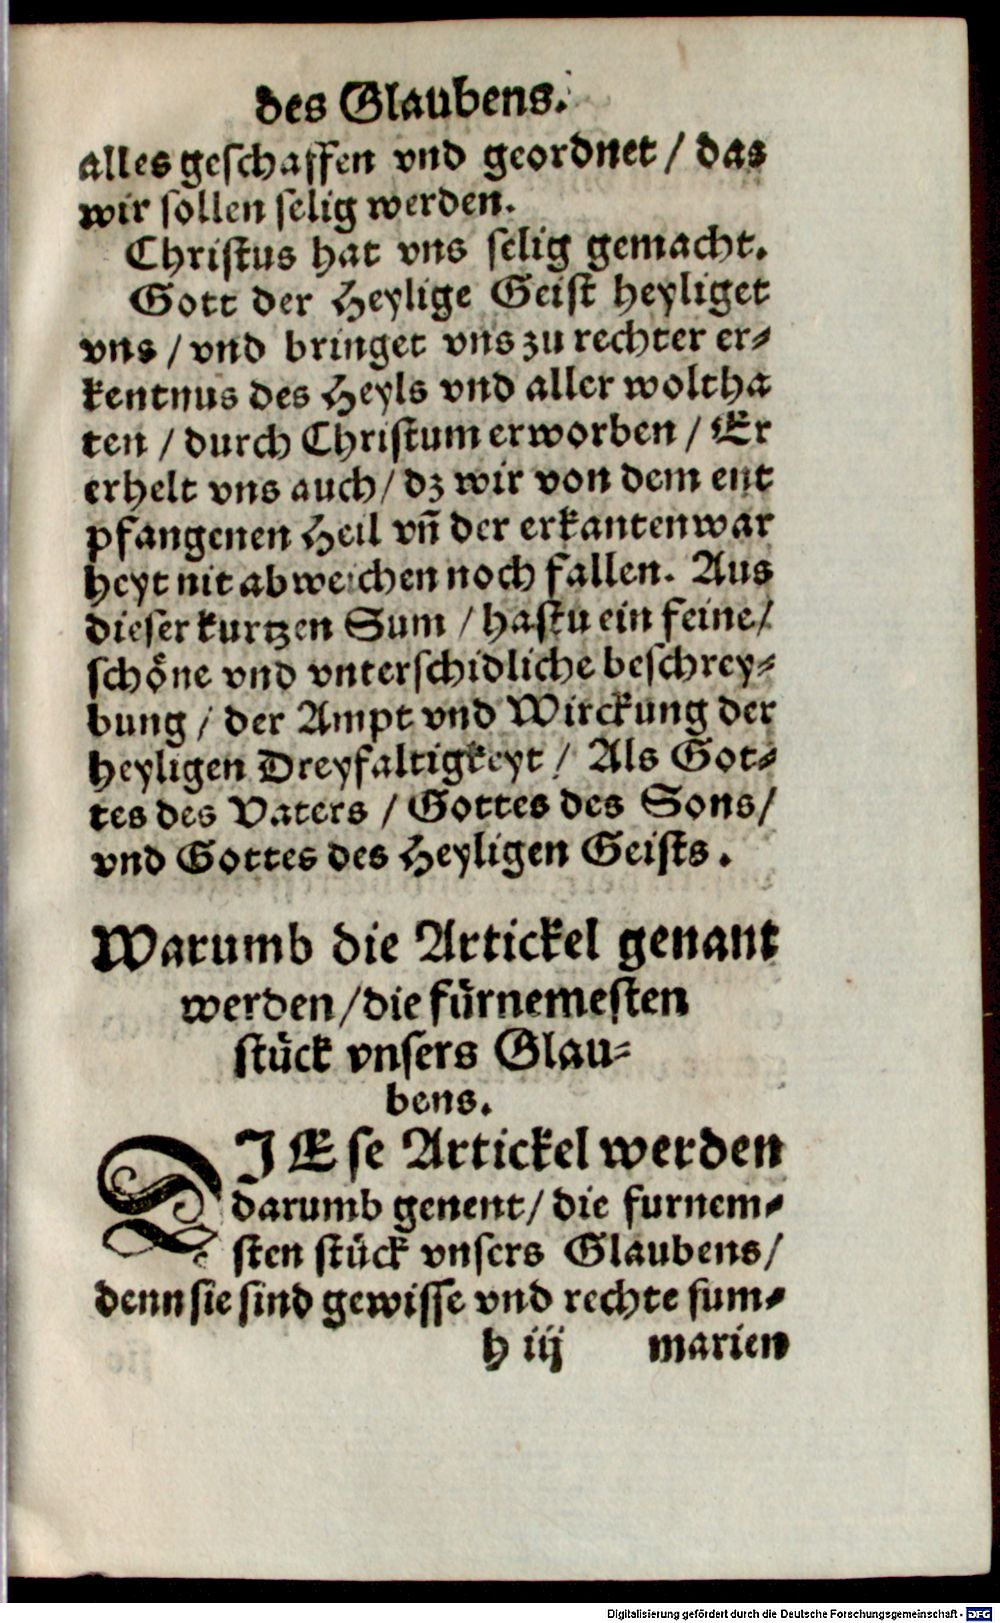 des Glaubens.
alles geschaffen vnd geordnet / das
wir sollen selig werden.
Christus hat vns selig gemacht.
Gott der Heylige Geist heyliget
vns / vnd bringet vns zu rechter er⸗
kentnus des Heyls vnd aller woltha
ten / durch Christum erworben / Er
erhelt vns auch / dz wir von dem ent
pfangenen Heil vn̄ der erkanten war
heyt nit abweichen noch fallen. Aus
dieser kurtzen Sum / hastu ein feine /
schöne vnd vnterschidliche beschrey⸗
bung / der Ampt vnd Wirckung der
heyligen Dreyfaltigkeyt / Als Got⸗
tes des Vaters / Gottes des Sons /
vnd Gottes des Heyligen Geists.
Warumb die Artickel genant
werden / die fürnemesten
stück vnsers Glau⸗
bens.
DIEse Artickel werden
darumb genent / die furnem⸗
sten stück vnsers Glaubens /
denn sie sind gewisse vnd rechte sum⸗
h iij marien
Digitalisierung gefördert durch die Deutsche Forschungsgemeinschaft - DFG